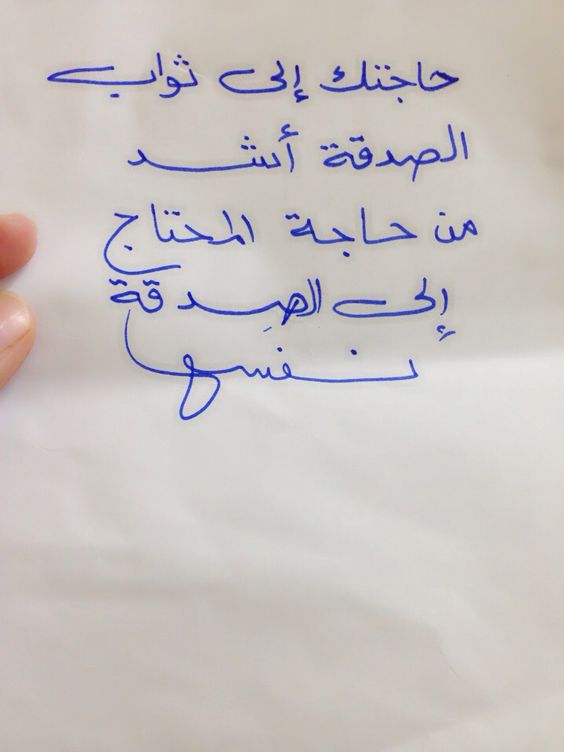 حاجتك إلى ثواب
الصدقة أشد
من حاجة المحتاج
إلى الصدقة
نفسها